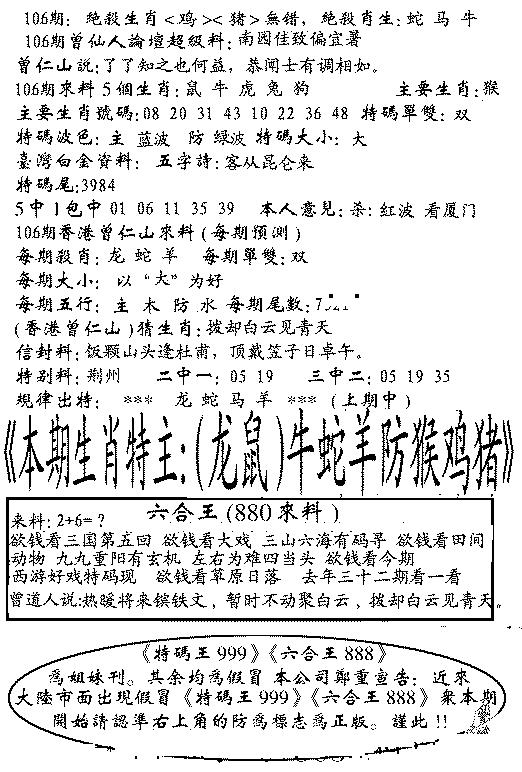 106期: 绝殺生肖<鸡><猪>無错，绝殺肖生: 蛇 马 牛
106期曾仙人論壇超級料: 南园佳致偏宜署
曾仁山説: 了了知之也何益，恭闻士有调相如。
106期來料5個生肖: 鼠 牛 虎 兔 狗 主要生肖: 猴
主要生肖號碼: 08 20 31 43 10 22 36 48 特碼單雙: 双
特碼波色: 主 蓝波 防 绿波 特碼大小: 大
臺灣白金資料: 五字詩: 客从昆仑来
特碼尾: 3984
5中1包中 01 06 11 35 39 本人意見: 杀: 红波 看厦门
106期香港曾仁山來料(每期預測)
每期殺肖: 龙 蛇 羊 每期單雙: 双
每期大小: 以“大”为好
每期五行: 主 木 防 水 每期尾數:
(香港曾仁山)猜生肖: 拨却白云见青天
信封料: 饭颗山头逢杜甫，顶戴笠子日卓午。
特别料: 荆州 二中一: 05 19 三中二: 05 19 35
規律出特: *** 龙 蛇 马 羊 *** (上期中)
《本期生肖特主:(龙鼠)牛蛇羊防猴鸡猪》
六合王(880來料)
来料: 2+6=?
欲钱看三国第五回 欲钱看大戏 三山六海有码寻 欲钱看田间
动物 九九重阳有玄机 左右为难四当头 欲钱看今期
西游好戏特码现 欲钱看草原日落 去年三十二期看一看
曾道人说: 热暖将来镔铁文，暂时不动聚白云，拨却白云见青天。
《特碼王999》《六合王888》
為姐妹刊。其余均為假冒 本公司鄭重宣告: 近來
大陸市面出現假冒《特碼王999》《六合王888》衆本期
開始請認準右上角的防為標志為正版。謹此!!